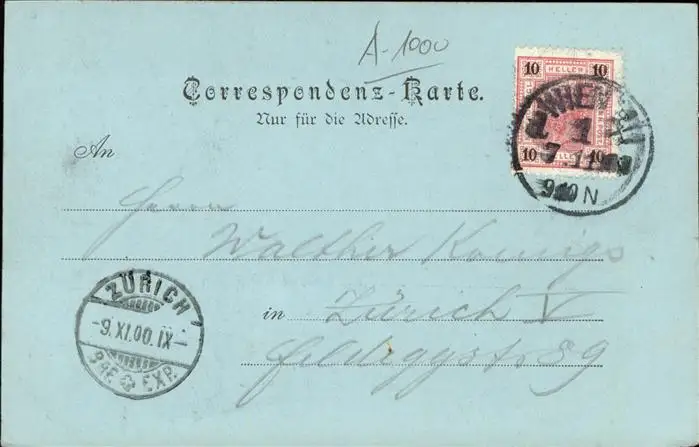 A-1000
10 HELLER 10
10 HELLER 10
WIEN
1 1
7.11
9 N
Correspondenz-Karte.
Nur für die Adresse.
An
Herrn
Walther Koenigs
in Zürich V
Feldeggstr 89
ZÜRICH
-9.XI.00.IX-
BRF. EXP.